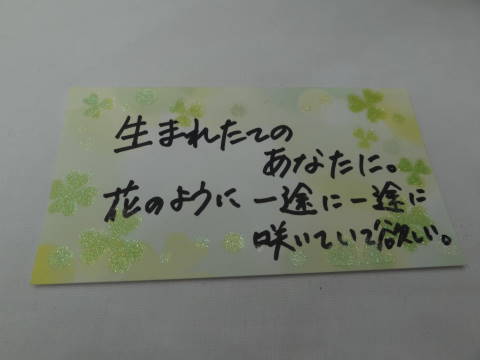 生まれたての
あなたに。
花のように一途に一途に
咲いていて欲しい。